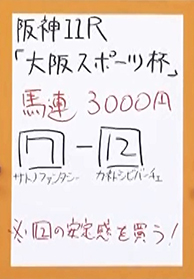 阪神11R
「大阪スポーツ杯」
馬連 3000円
7 - 12
サトノファンタシー カネトシビバーチェ
※12の安定感を買う!